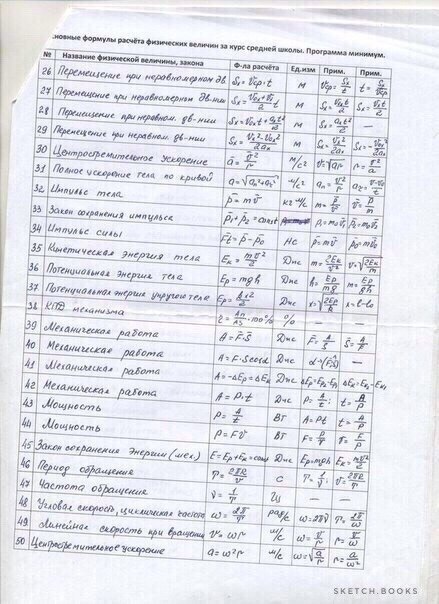 новные формулы расчёта физических величин за курс средней школы. Программа минимум.
№ Название физической величины, закона Ф-ла расчёта Ед.изм Прим. Прим.
26 Перемещение при неравномерном дв. Sx = Vср·t м Vср = Sx/t t = Sx/Vср
27 Перемещение при неравномерном дв-нии Sx = (V0x+Vx)/2 t м Sx = V0x/2 t Sx = Vxt/2
28 Перемещение при неравном. дв-нии Sx = V0xt + axt²/2 м Sx = axt²/2 —
29 Перемещение при неравном. дв-нии Sx = (Vx²-V0x²)/2ax м Sx = Vx²/2ax Sx = V0x²/2ax
30 Центростремительное ускорение a = v²/r м/с² v = √ar r = v²/a
31 Полное ускорение тела по кривой a = √aн²+aτ² м/с² aн = v²/r
32 Импульс тела p̄ = mv̄ кг м/с m = p̄/v̄ v̄ = p̄/m
33 Закон сохранения импульса p̄1 + p̄2 = const
34 Импульс силы F̄t = p̄ - p̄0 Нс p̄ = mv̄ p̄0 = mv̄0
35 Кинетическая энергия тела Eк = mv²/2 Дж m = 2Eк/v² v = √2Eк/m
36 Потенциальная энергия тела Ep = mgh Дж h = Ep/mg m = Ep/gh
37 Потенциальная энергия упругого тела Ep = kx²/2 Дж x = √2Ep/k x = l-l0
38 КПД механизма ·100% % — —
39 Механическая работа A = F̄·S̄ Дж F = A/S S = A/F
40 Механическая работа A = F·S cosα Дж α → (F̄;S̄)
41 Механическая работа A = -ΔEp = ΔEк Дж ΔEp = Ep2-Ep1 ΔEк = Eк2-Eк1
42 Механическая работа A = P·t Дж P = A/t t = A/P
43 Мощность P = A/t Вт A = Pt t = A/P
44 Мощность P = Fv̄ Вт F = P/v v = P/F
45 Закон сохранения энергии (мех.) E = Ep + Eк = const Дж Ep = mgh Eк = mv²/2
46 Период обращения T = 2πr/v с T = 1/ν v = 2πr/T
47 Частота обращения ν = 1/T Гц — —
48 Угловая скорость, циклическая частота ω = 2π/T рад/с ω = 2πν T = 2π/ω
49 Линейная скорость при вращении v = ωr м/с ω = v/r r = v/ω
50 Центростремительное ускорение a = ω²r м/с ω = √a/r r = a/ω²
SKETCH.BOOKS